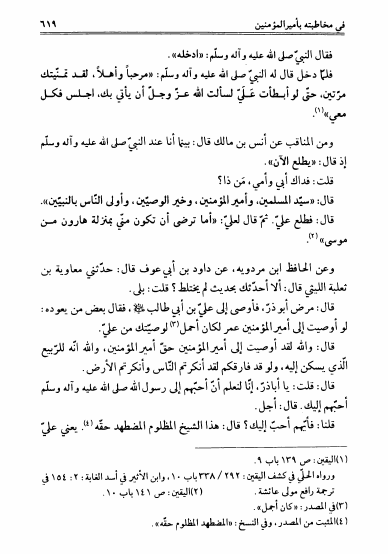 في مخاطبته بأميرالمؤمنين ٦١٩
فقال النبيّ صلى الله عليه وآله وسلّم: «أدخله».
فلمّا دخل قال له النبيّ صلى الله عليه وآله وسلّم: «مرحباً وأهلاً، لقد تمنّيتك
مرّتين، حتّى لو أبطأت عَلَيَّ لسألت الله عزّ وجلّ أن يأتي بك، اجلس فكل
معي»(١).
ومن المناقب عن أنس بن مالك قال: بينما أنا عند النبيّ صلى الله عليه وآله وسلّم
إذ قال: «يطلع الآن».
قلت: فداك أبي وأمي، مَن ذا؟
قال: «سيّد المسلمين، وأمير المؤمنين، وخير الوصيّين، وأولى النّاس بالنبيّين».
قال: فطلع عليّ. ثمّ قال لعليّ: «أما ترضى أن تكون منّي بمنزلة هارون مـن
موسى»(٢).
وعن الحافظ ابن مردويه، عن داود بن أبي عوف قال: حدّثني معاوية بن
ثعلبة الليثي قال: ألا أحدّثك بحديث لم يختلط؟ قلت: بلى.
قال: مرض أبو ذرّ، فأوصى إلى عليّ بن أبي طالب ﷺ، فقال بعض من يعوده:
لو أوصيت إلى أمير المؤمنين عمر لكان أجمل(٣) لوصيّتك من عليّ.
قال: والله لقد أوصيت إلى أمير المؤمنين حقّ أمير المؤمنين، والله انّه للربيع
الّذي يسكن إليه، ولو قد فارقكم لقد أنكرتم النّاس وأنكرتم الأرض.
قال: قلت: يا أباذرّ، إنّا لنعلم أنّ أحبّهم إلى رسول الله صلى الله عليه وآله وسلّم
أحبّهم إليك. قال: أجل.
قلنا: فأيّهم أحبّ إليك؟ قال: هذا الشيخ المظلوم المضطهد حقّه(٤). يعني عليّ
(١) اليقين: ص ١٣٩ باب ٩.
ورواه الحلّي في كشف اليقين: ٢٩٢ / ٣٣٨ باب ١٠، وابن الأثير في أسد الغابة: ٢: ١٥٤ في
ترجمة رافع مولى عائشة. (٢) اليقين: ص ١٤١ باب ١٠.
(٣) في المصدر: «كان أجمل».
(٤) المثبت من المصدر، وفي النسخ: «المضطهد المظلوم حقّه».